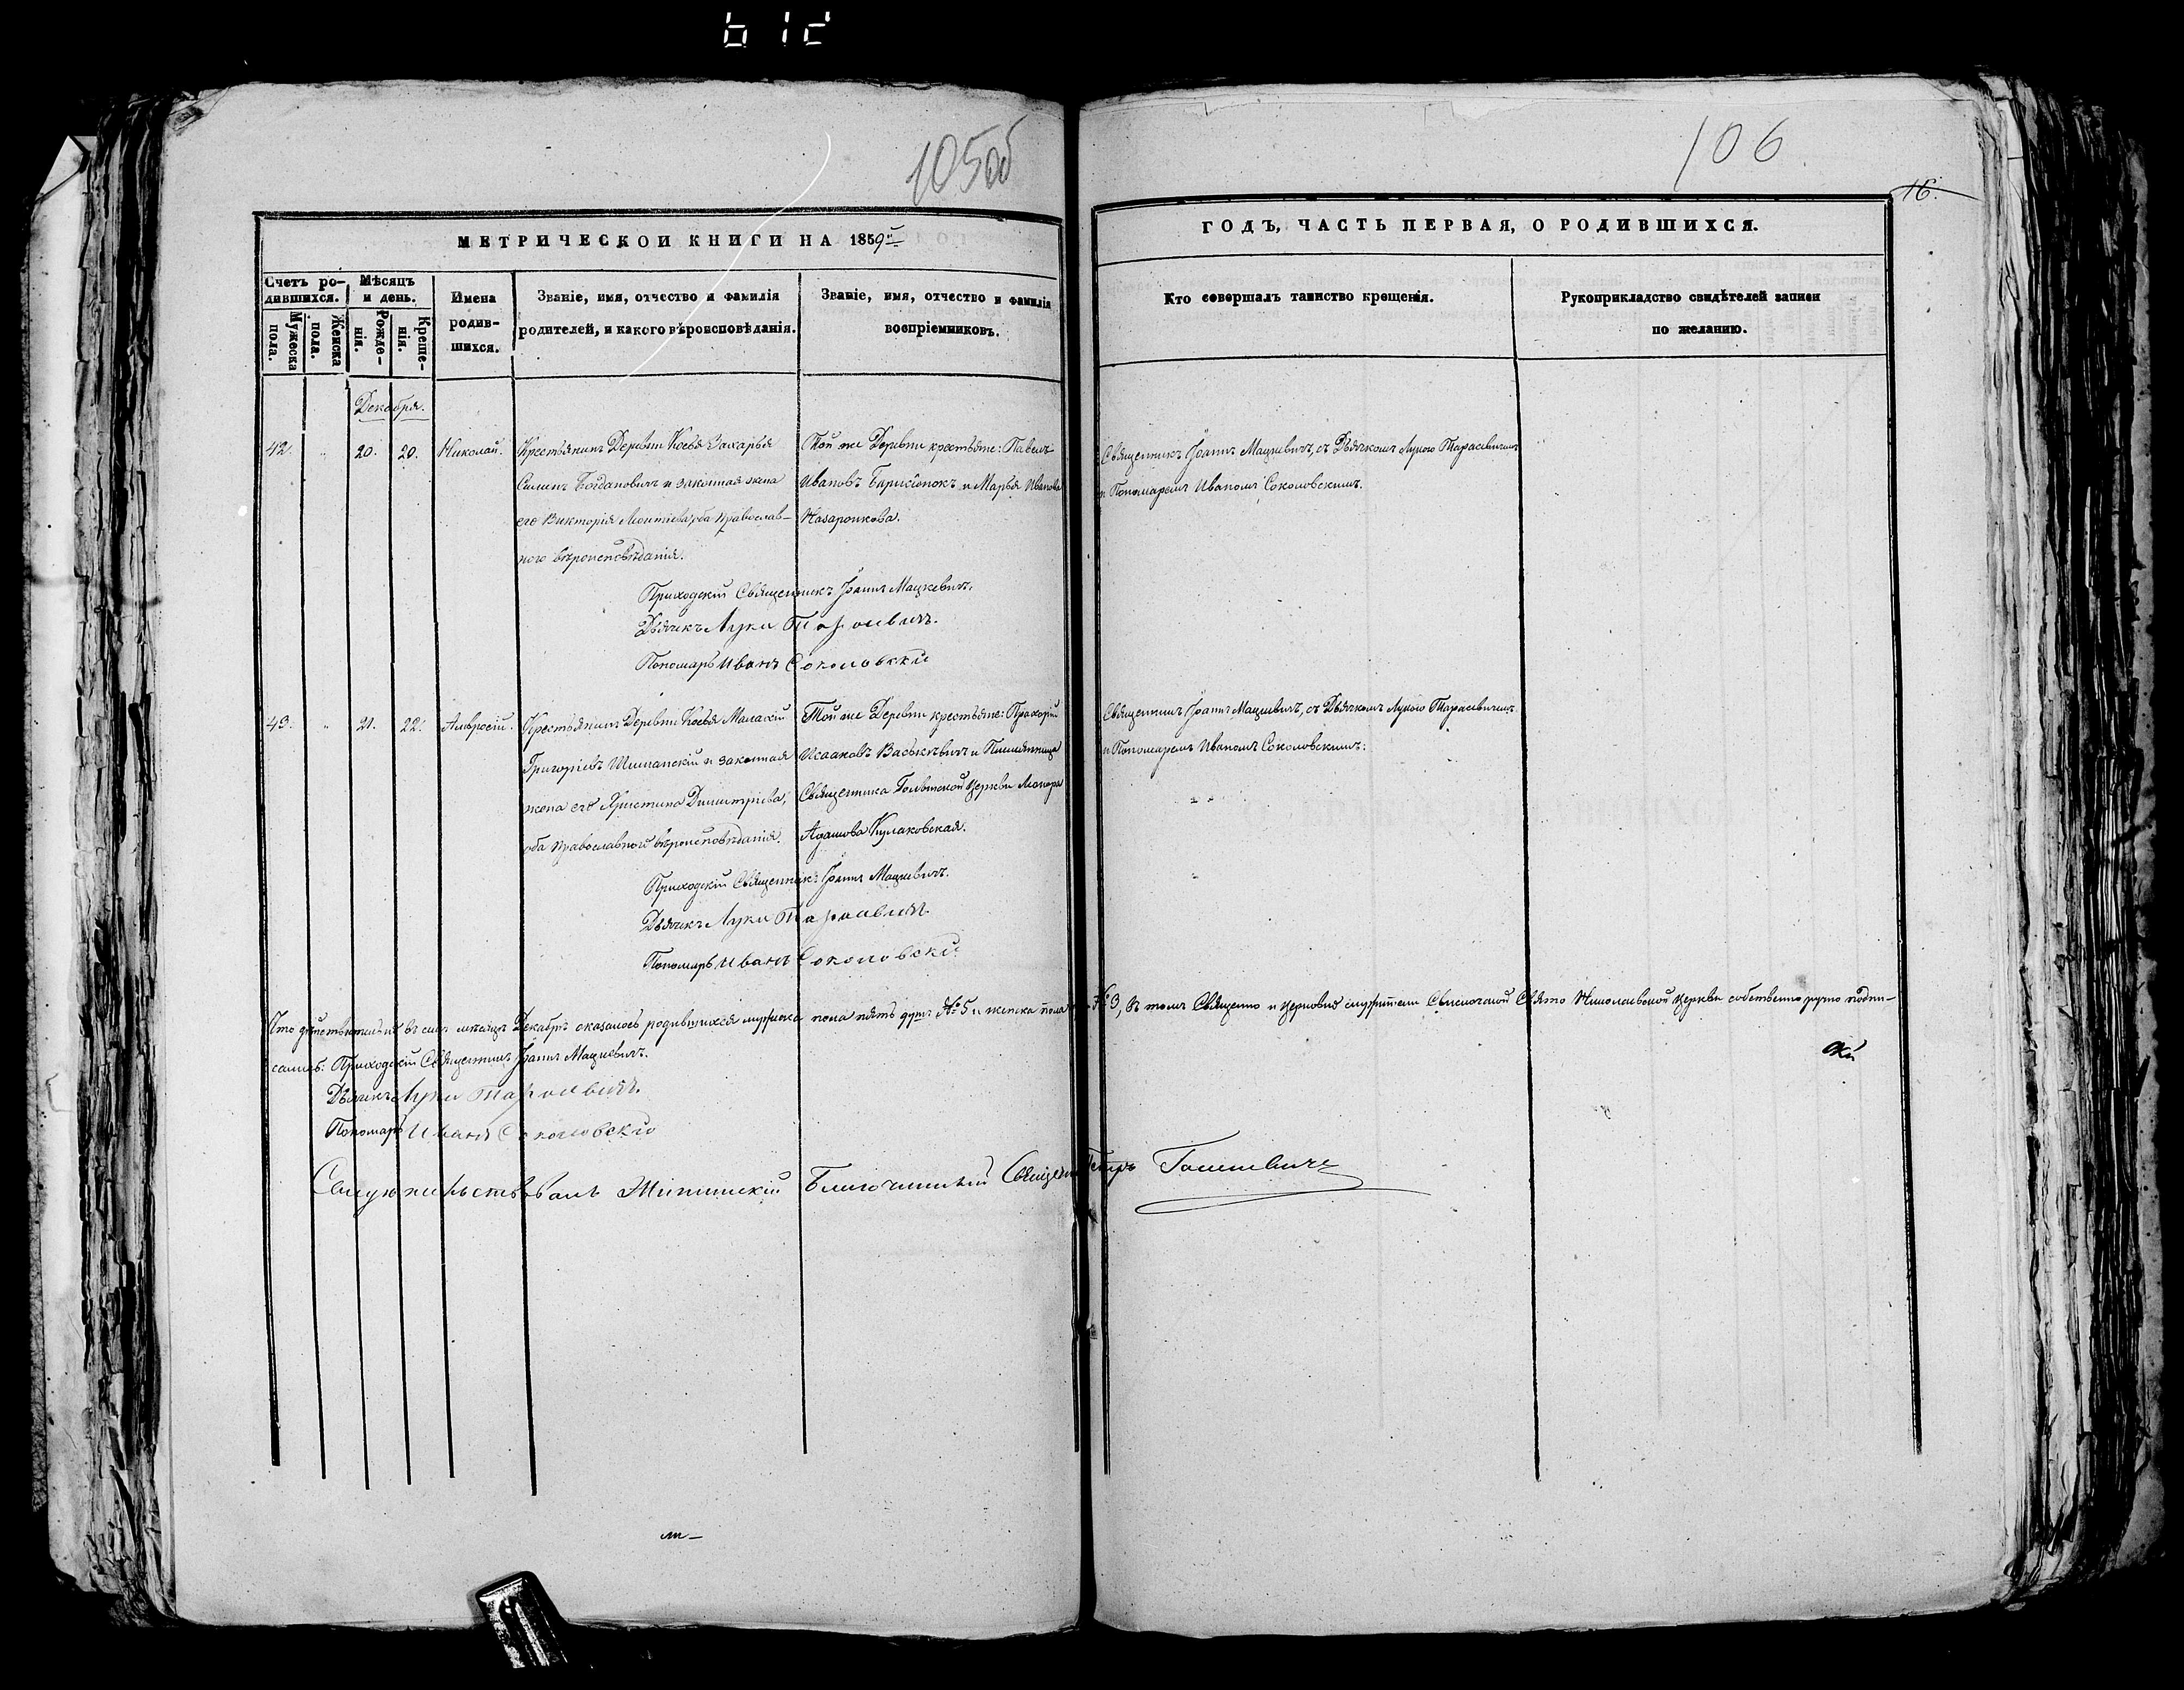 105об
106
16.
МЕТРИЧЕСКОЙ КНИГИ НА 1859й
ГОДЪ, ЧАСТЬ ПЕРВАЯ, О РОДИВШИХСЯ.
Счетъ ро-
дившихся.
Мужеска
пола.
Женска
пола.
Мѣсяцъ
и день.
Рожде-
нія.
Креще-
нія.
Имена
родив-
шихся.
Званіе, имя, отчество и фамилія
родителей, и какого вѣроисповѣданія.
Званіе, имя, отчество и фамилія
воспріемниковъ.
Кто совершалъ таинство крещенія.
Рукоприкладство свидѣтелей записи
по желанію.
Декабря.
42. " 20. 20. Николай.
Крестьянинъ Деревни Косья Захарья
Силинъ Богдановичъ и законная жена
его Викторія Леонтіева, оба православ-
ного вѣроисповѣданія.
Той же Деревни крестьяне: Павелъ
Ивановъ Барисіонокъ и Марья Иванова
Назаронкова.
Священникъ Іоаннъ Мацкевичъ, съ Дьячкомъ Лукою Тарасевичемъ
и Пономаремъ Иваномъ Соколовскимъ.
Приходскій Священникъ Іоаннъ Мацкевичъ.
Дьячекъ Лука Тарасевичъ.
Пономарь Иванъ Соколовскій
43. " 21. 22. Амвросій.
Крестьянинъ Деревни Косья Малахій
Григоріевъ Шиманскій и законная
жена его Христина Димитріева,
оба православной вѣроисповѣданія.
Той же Деревни крестьяне: Прохорій
Исааковъ Васькевичъ и Племянница
Священника Церкви
Адамова Кулаковская.
Священникъ Іоаннъ Мацкевичъ, съ Дьячкомъ Лукою Тарасевичемъ
и Пономаремъ Иваномъ Соколовскимъ.
Приходскій Священникъ Іоаннъ Мацкевичъ.
Дьячекъ Лука Тарасевичъ.
Пономарь Иванъ Соколовскій
Что дѣйствительно въ семъ мѣсяцѣ Декабрѣ оказалось родившихся мужеска пола пять душъ № 5 и женска пола № 3, въ томъ Священно и церковно служители Свислочской Свято Николаевской церкви собственно ручно подпи-
сались: Приходскій Священникъ Іоаннъ Мацкевичъ.
Дьячекъ Лука Тарасевичъ.
Пономарь Иванъ Соколовскій
Свидѣтельствовалъ Благочинный Священникъ Петръ